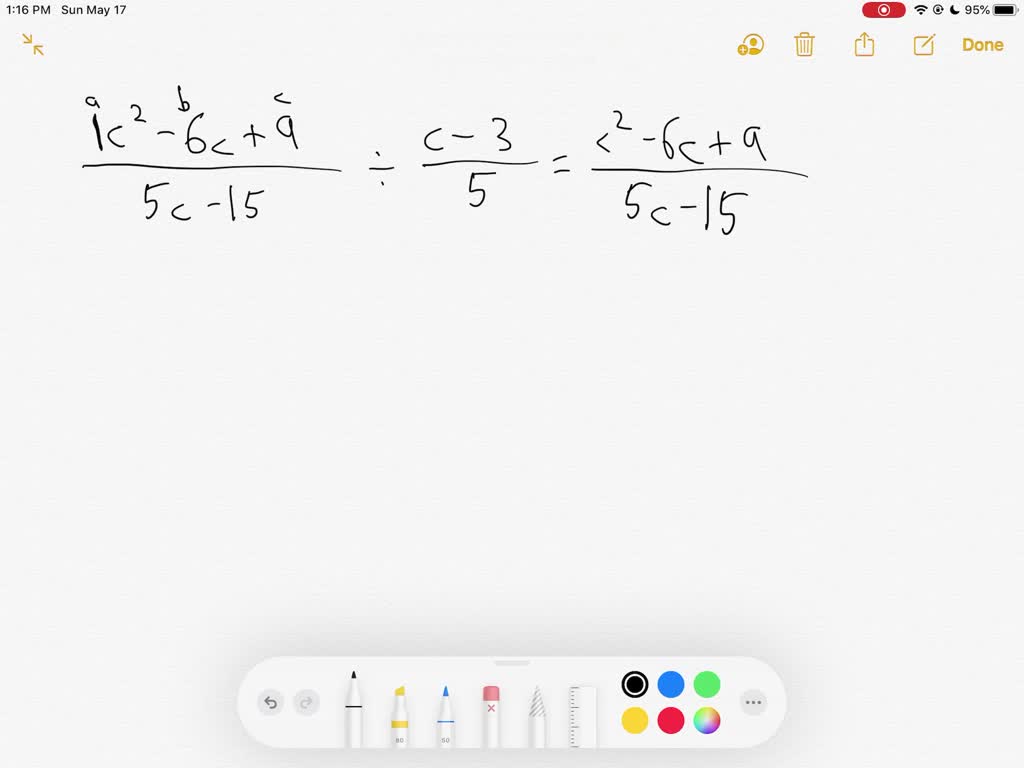 1:16 PM Sun May 17 95%
Done
a b c
1c² - 6c + 9 / 5c - 15 ÷ c - 3 / 5 = c² - 6c + 9 / 5c - 15
80 50